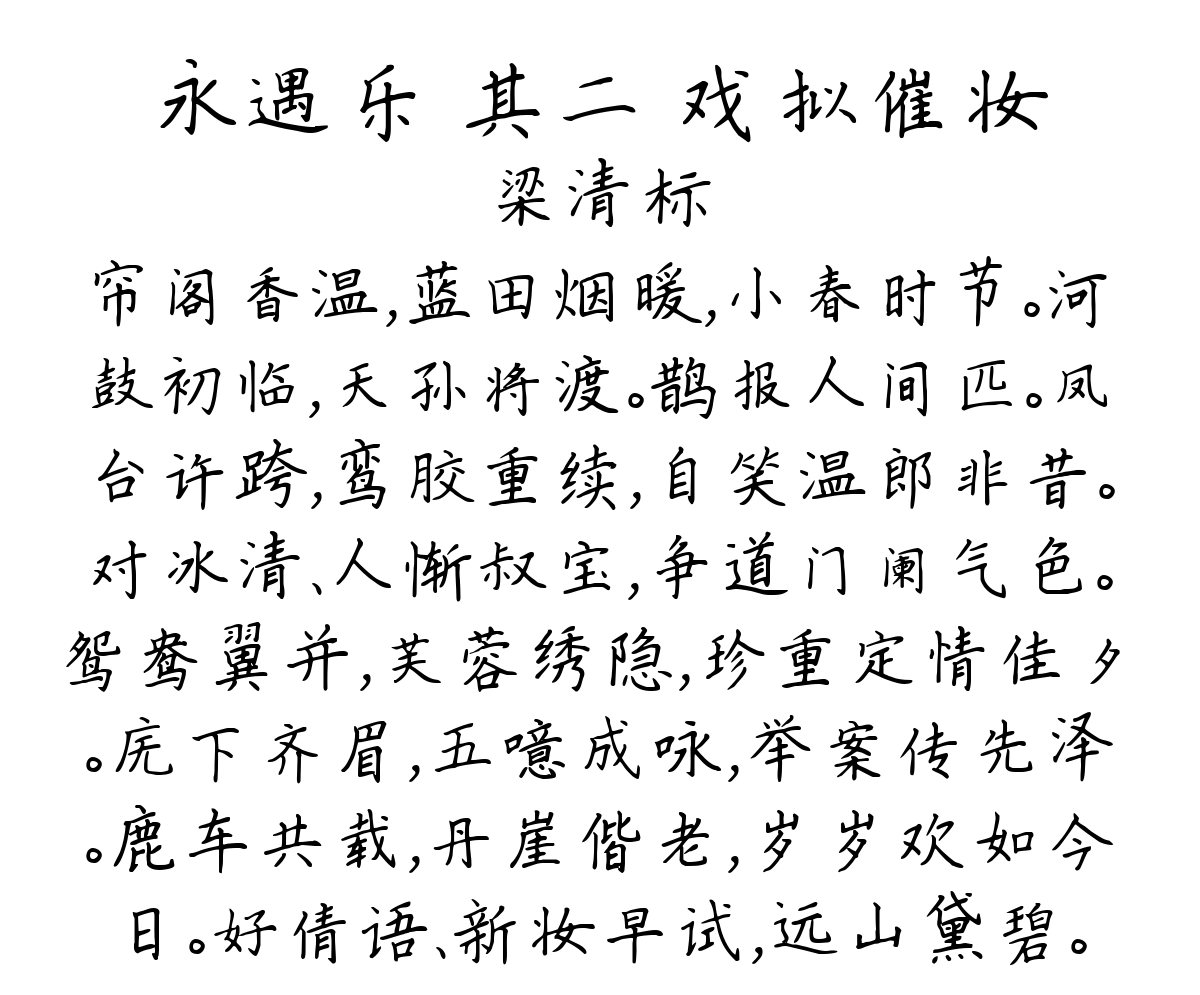 永遇乐 其二 戏拟催妆
梁清标
帘阁香温,蓝田烟暖,小春时节。河
鼓初临,天孙将渡。鹊报人间匹。凤
台许跨,鸾胶重续,自笑温郎非昔。
对冰清、人惭叔宝,争道门阑气色。
鸳鸯翼并,芙蓉绣隐,珍重定情佳夕
。庑下齐眉,五噫成咏,举案传先泽
。鹿车共载,丹崖偕老,岁岁欢如今
日。好倩语、新妆早试,远山黛碧。